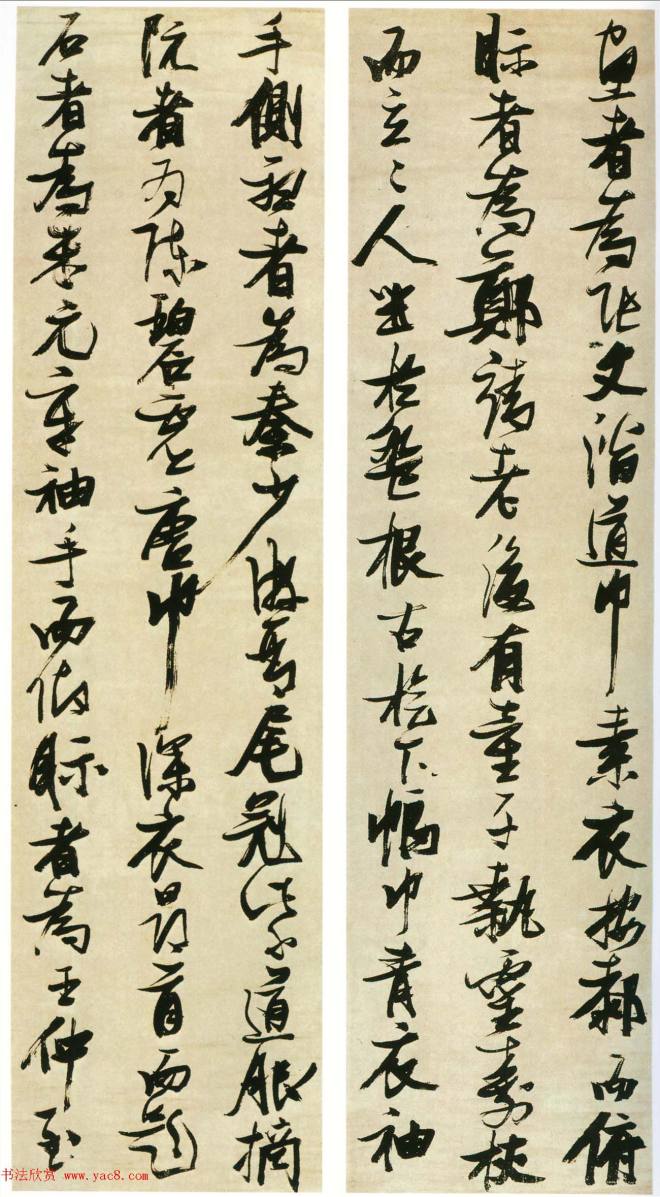 畫者為張文潛道巾素衣按膝而俯
眎者為鄭靖老後有童子執靈壽杖
而立二人坐於盤根古檜下幅巾青衣袖
手側聽者為秦少游琴尾冠紫道服摘
阮者为陳碧虛唐巾深衣昂首而題
石者為米元章袖手而仰眎者為王仲至
书法欣赏 www.yac8.com